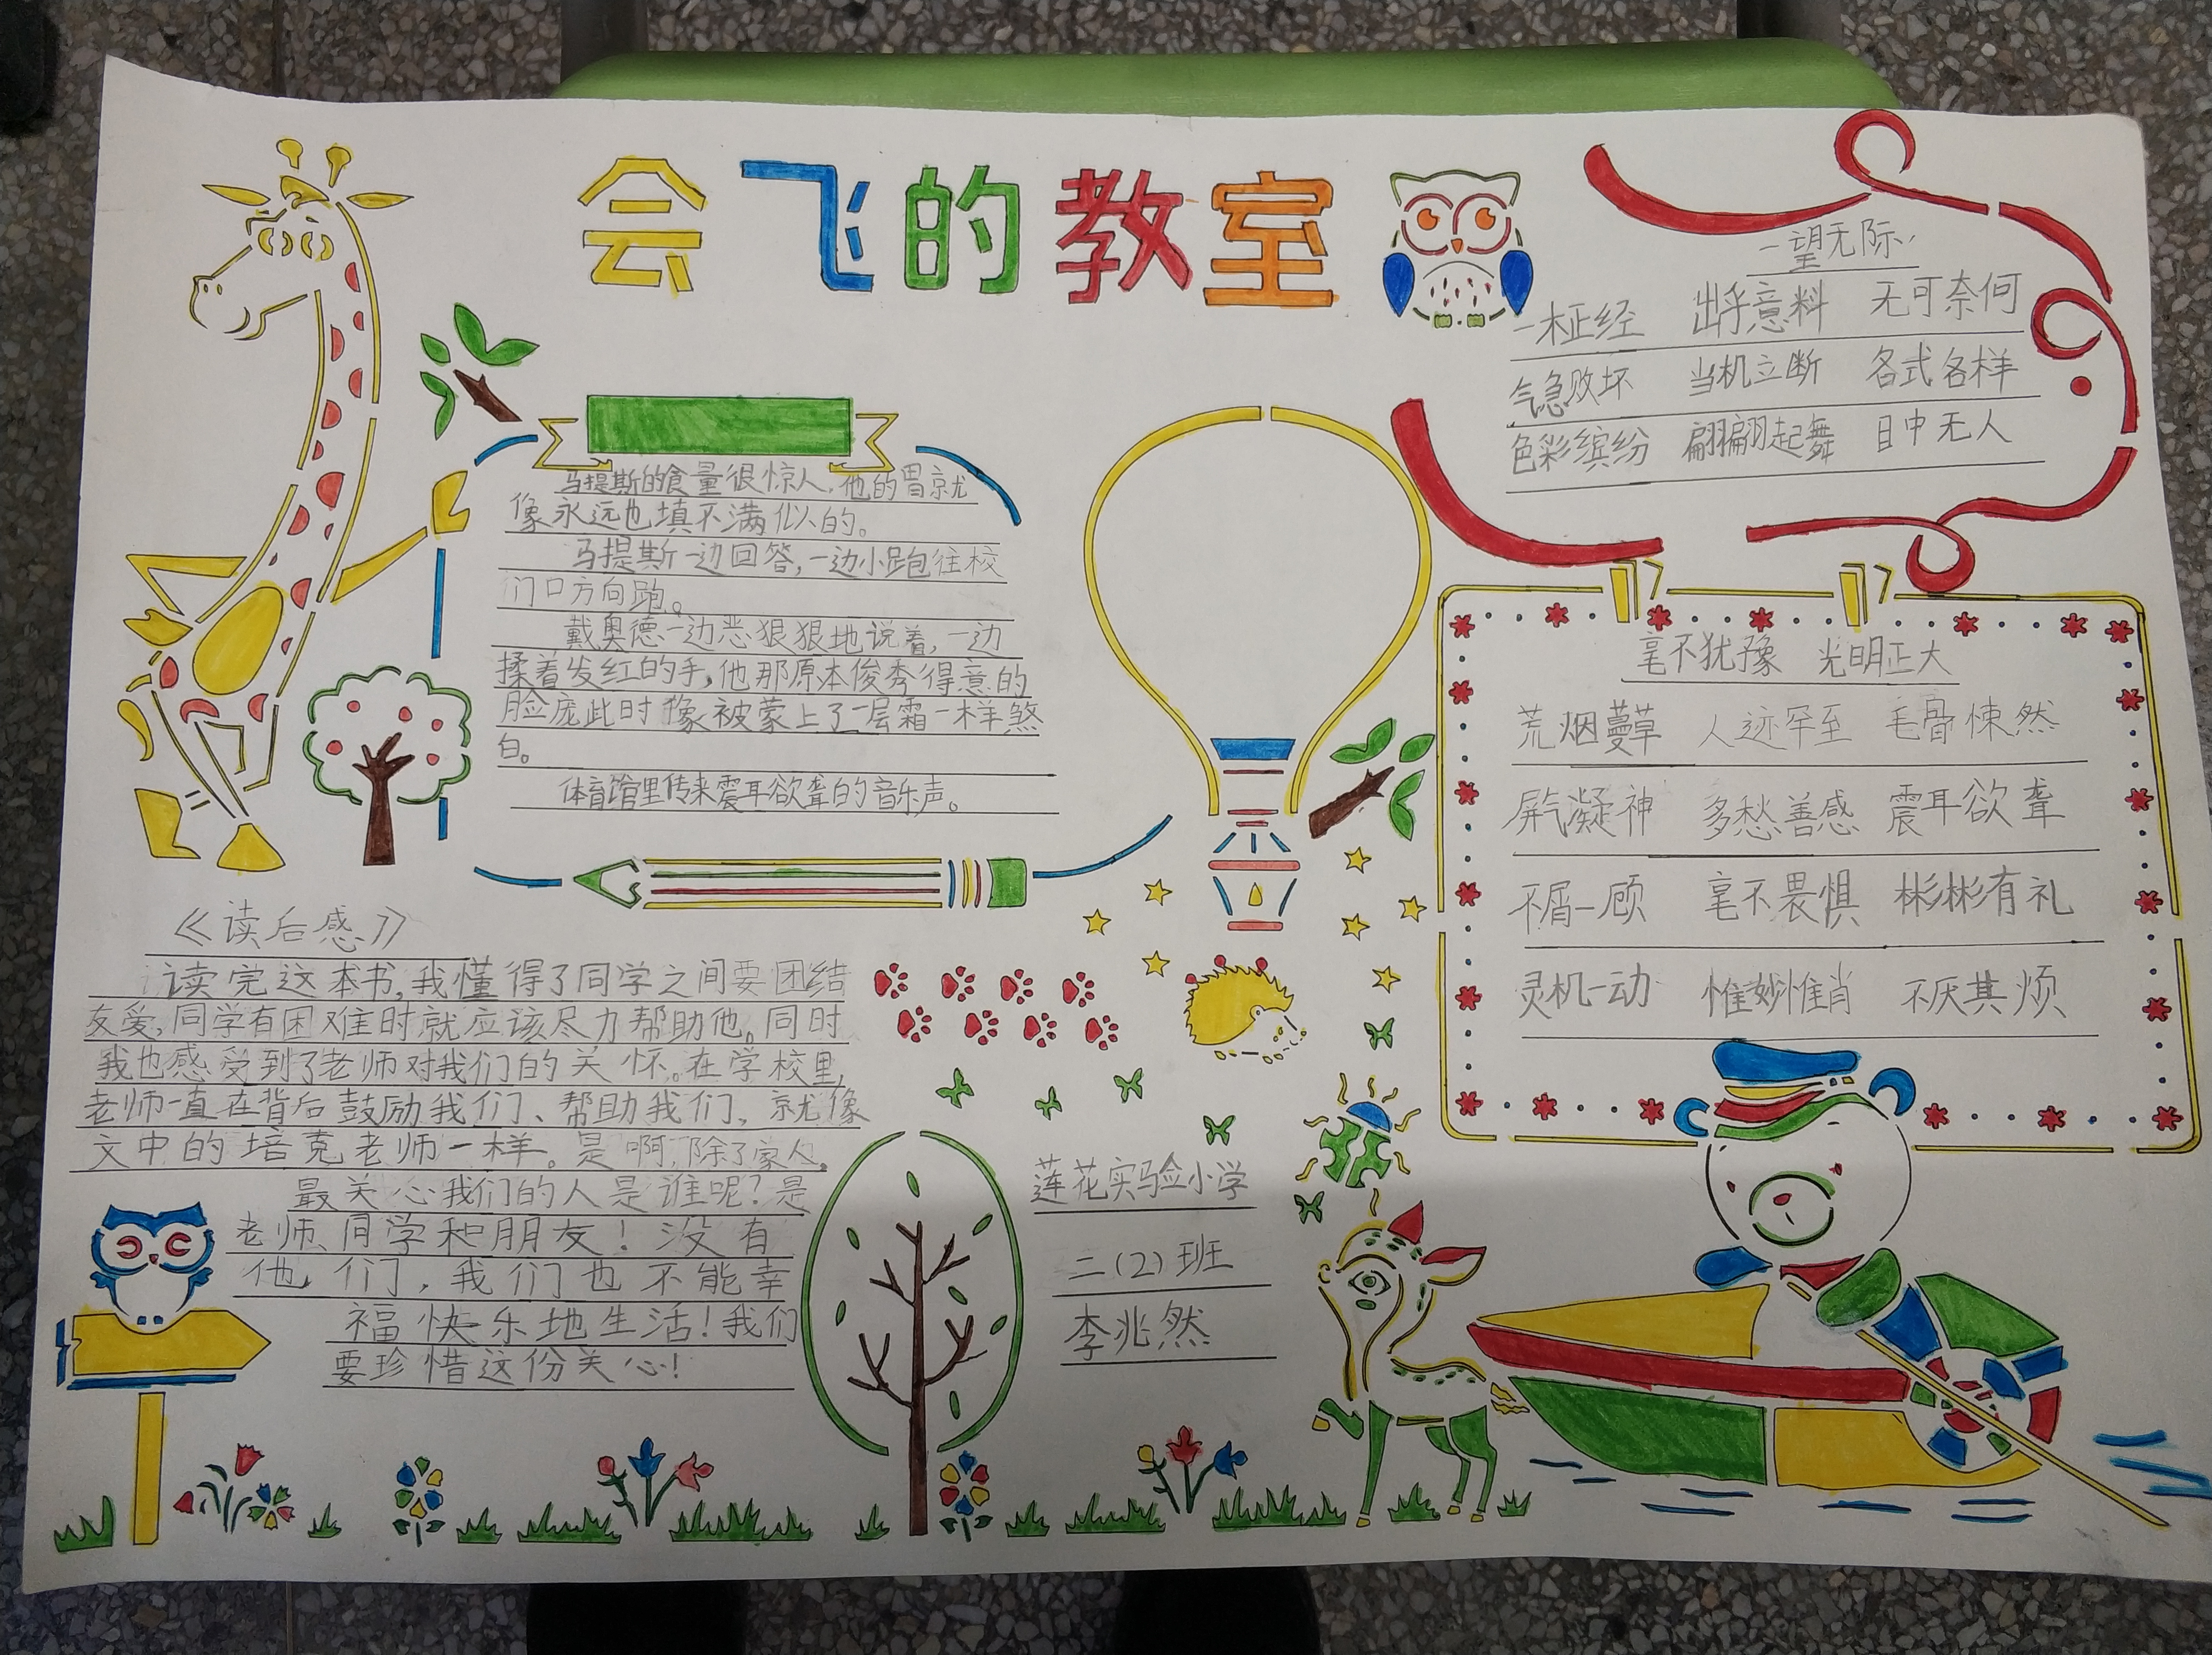 会飞的教室
马提斯的食量很惊人,他的胃就
像永远也填不满似的。
马提斯一边回答,一边小跑往校
门口方向跑。
戴奥德一边恶狠狠地说着,一边
揉着发红的手,他那原本俊秀得意的
脸庞此时像被蒙上了一层霜一样煞
白。
体育馆里传来震耳欲聋的音乐声。
一望无际
一本正经 出乎意料 无可奈何
气急败坏 当机立断 各式各样
色彩缤纷 翩翩起舞 目中无人
毫不犹豫 光明正大
荒烟蔓草 人迹罕至 毛骨悚然
屏气凝神 多愁善感 震耳欲聋
不屑一顾 毫不畏惧 彬彬有礼
灵机一动 惟妙惟肖 不厌其烦
《读后感》
读完这本书,我懂得了同学之间要团结
友爱,同学有困难时就应该尽力帮助他。同时
我也感受到了老师对我们的关怀。在学校里,
老师一直在背后鼓励我们、帮助我们。就像
文中的培克老师一样。是啊,除了家人。
最关心我们的人是谁呢?是
老师、同学和朋友!没有
他们,我们也不能幸
福快乐地生活!我们
要珍惜这份关心!
莲花实验小学
二(2)班
李兆然